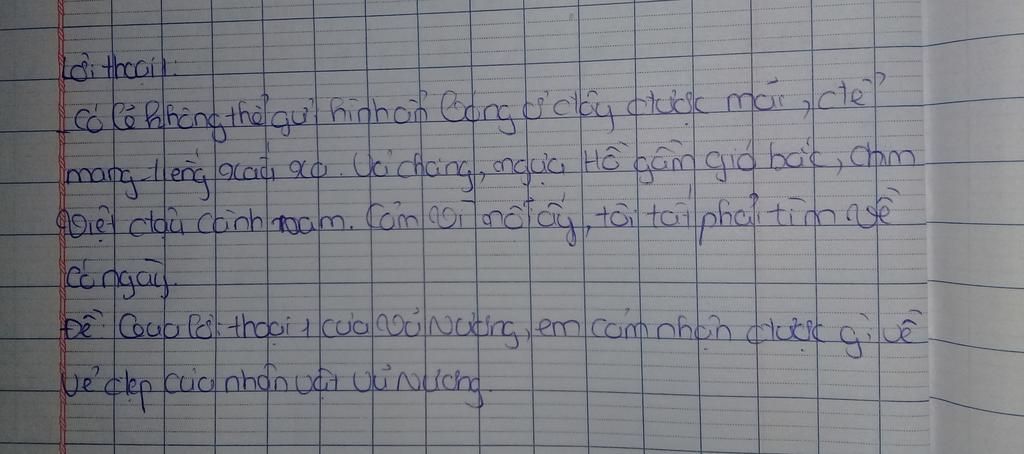 Lời thoại 1:
Có lẽ không thể gửi hình ẩn bóng ở đây được mãi, để
mang tiếng xấu xa. Vả chăng, ngựa Hồ gầm gió bắc, chim
Việt đậu cành nam. Cảm vì nỗi ấy, tôi tất phải tìm về
có ngày.
Đề: Qua lời thoại 1 của Vũ Nương, em cảm nhận được gì về
vẻ đẹp của nhân vật Vũ Nương.